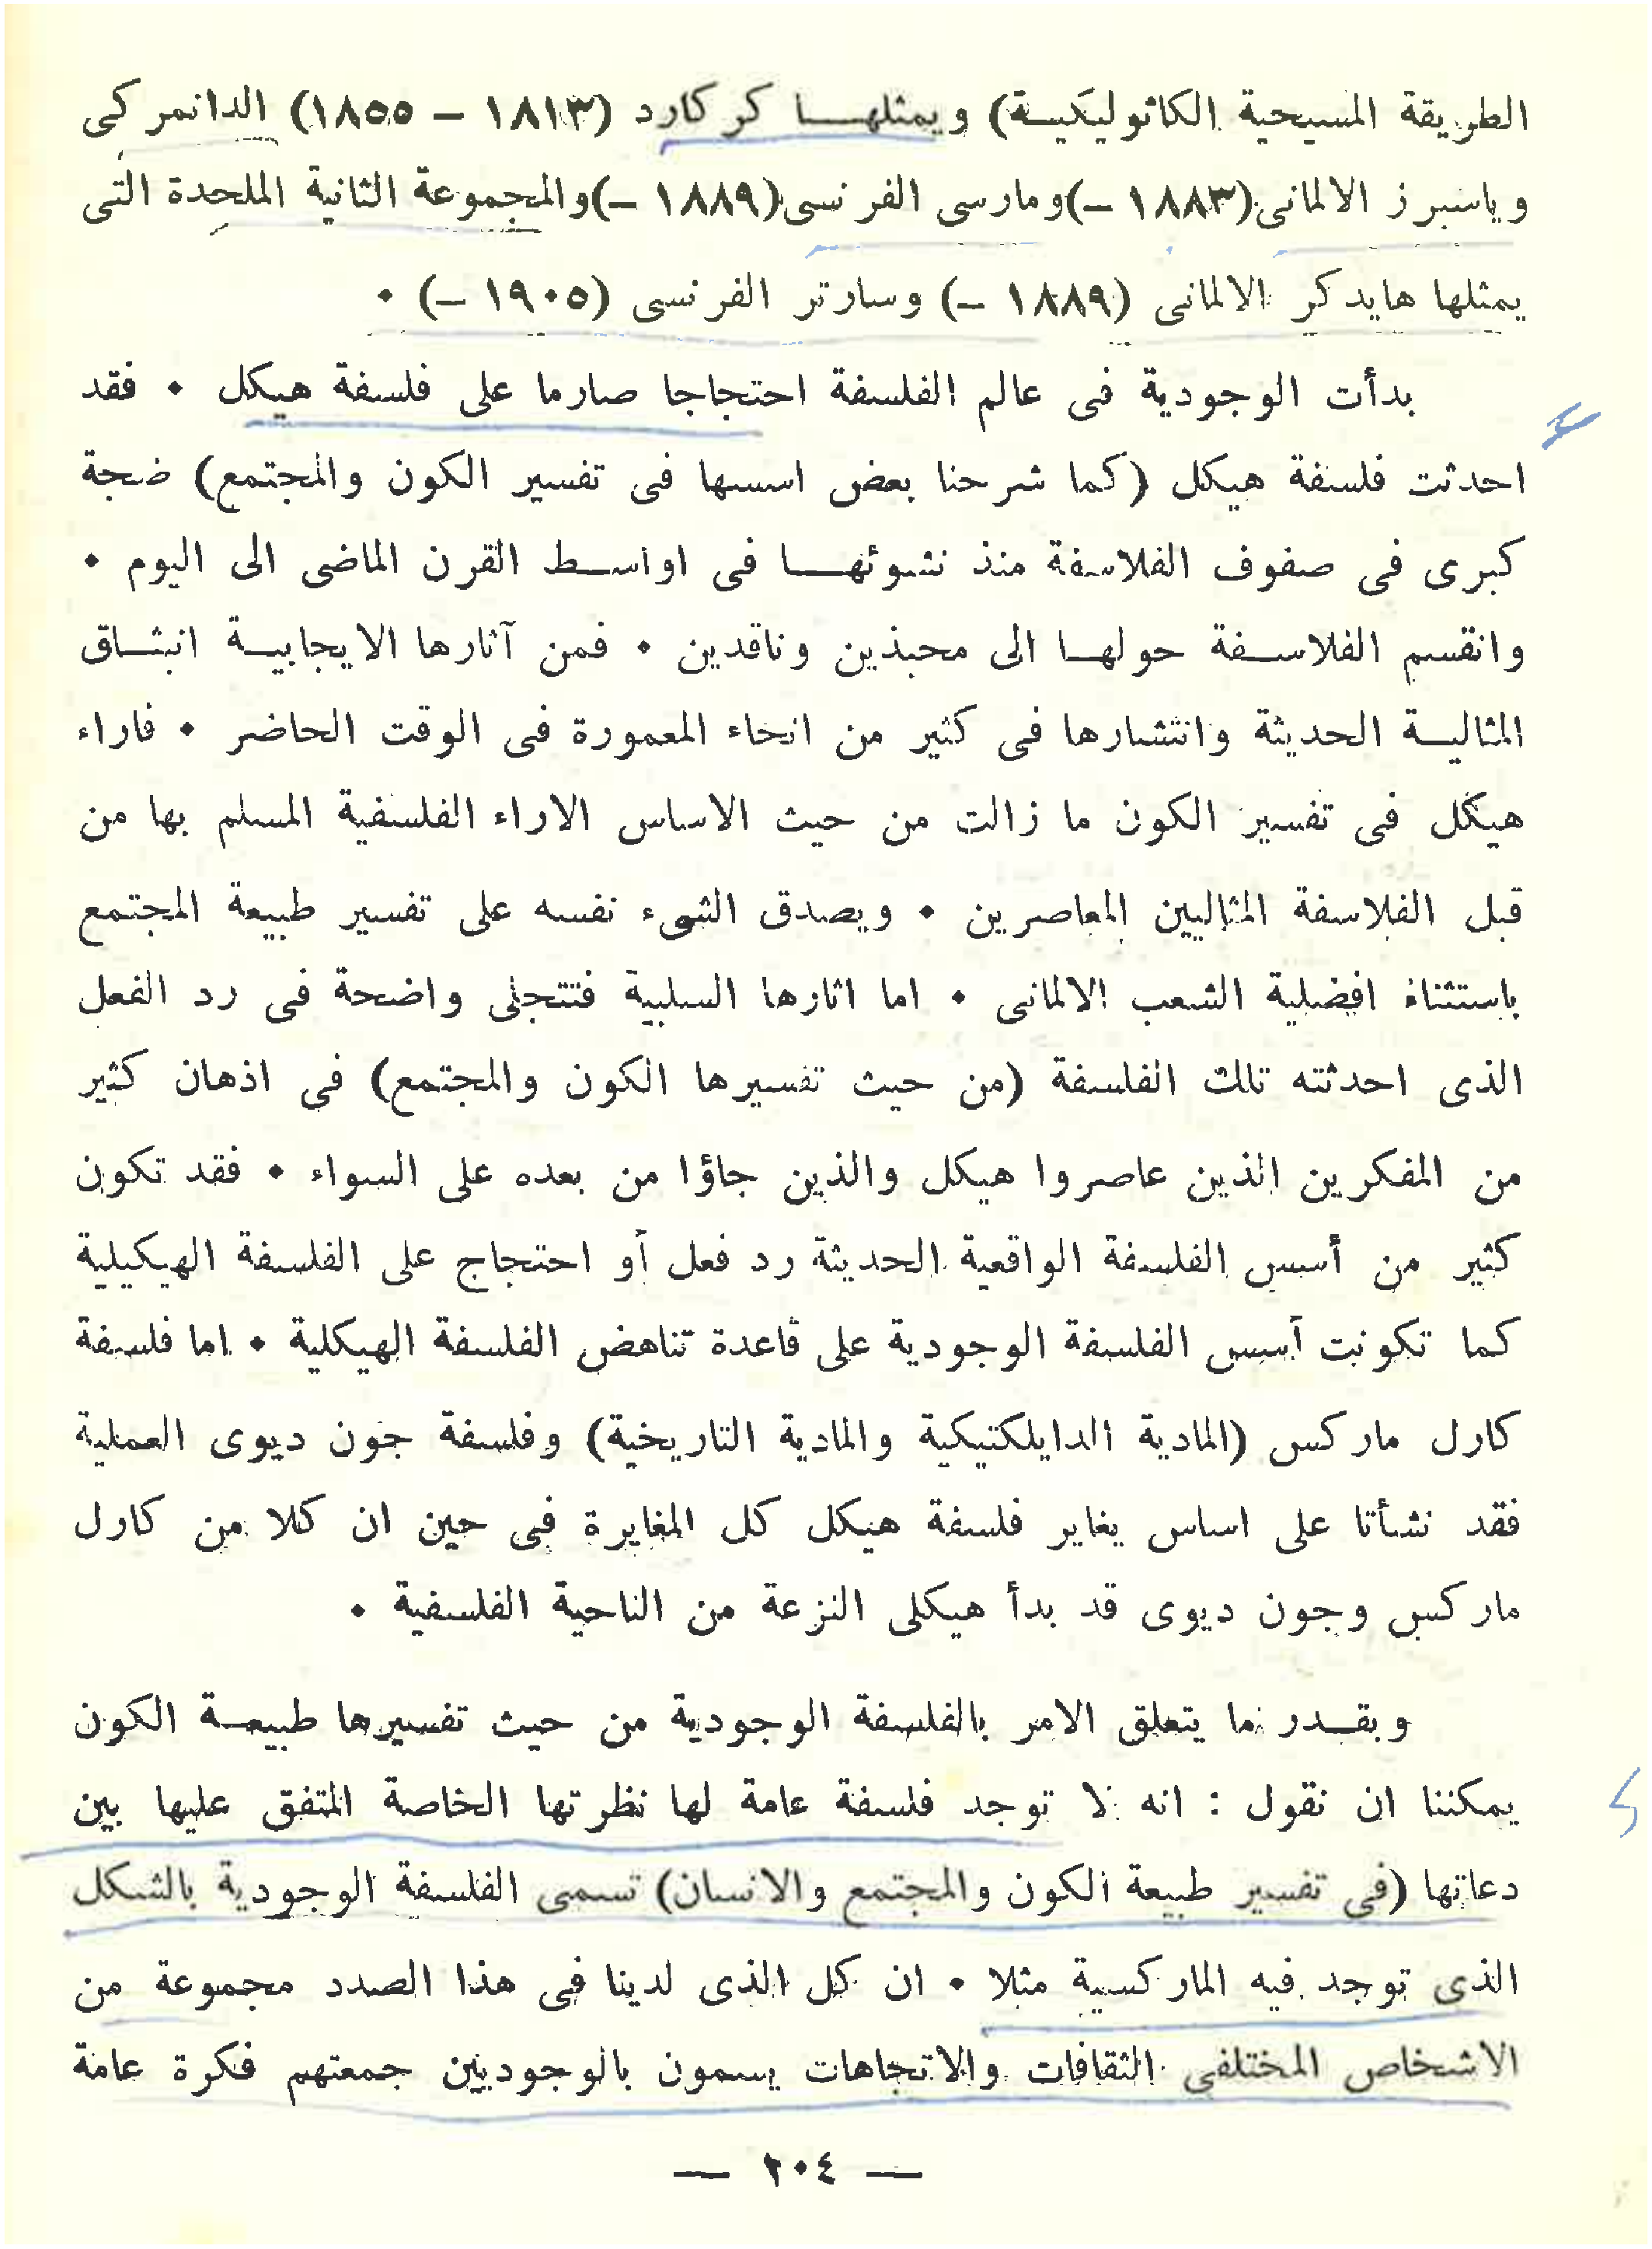 الطريقة المسيحية الكاثوليكية) ويمثلها كركارد (١٨١٣ – ١٨٥٥) الدانمركى
وياسبرز الالمانى (١٨٨٣ –) ومارسى الفرنسى (١٨٨٩ –) والمجموعة الثانية الملحدة التى
يمثلها هايدكر الالمانى (١٨٨٩ –) وسارتر الفرنسى (١٩٠٥ –) ٠
بدأت الوجودية فى عالم الفلسفة احتجاجا صارما على فلسفة هيكل ٠ فقد
احدثت فلسفة هيكل (كما شرحنا بعض اسسها فى تفسير الكون والمجتمع) ضجة
كبرى فى صفوف الفلاسفة منذ نشوئها فى اواسط القرن الماضى الى اليوم ٠
وانقسم الفلاسفة حولها الى محبذين وناقدين ٠ فمن آثارها الايجابية انبثاق
المثالية الحديثة وانتشارها فى كثير من انحاء المعمورة فى الوقت الحاضر ٠ فاراء
هيكل فى تفسير الكون ما زالت من حيث الاساس الاراء الفلسفية المسلم بها من
قبل الفلاسفة المثاليين المعاصرين ٠ ويصدق الشىء نفسه على تفسير طبيعة المجتمع
باستثناء افضلية الشعب الالمانى ٠ اما اثارها السلبية فتتجلى واضحة فى رد الفعل
الذى احدثته تلك الفلسفة (من حيث تفسيرها الكون والمجتمع) فى اذهان كثير
من المفكرين الذين عاصروا هيكل والذين جاؤا من بعده على السواء ٠ فقد تكون
كثير من أسس الفلسفة الواقعية الحديثة رد فعل أو احتجاج على الفلسفة الهيكيلية
كما تكونت أسس الفلسفة الوجودية على قاعدة تناهض الفلسفة الهيكلية ٠ اما فلسفة
كارل ماركس (المادية الدايلكتيكية والمادية التاريخية) وفلسفة جون ديوى العملية
فقد نشأتا على اساس يغاير فلسفة هيكل كل المغايرة فى حين ان كلا من كارل
ماركس وجون ديوى قد بدأ هيكلى النزعة من الناحية الفلسفية ٠
وبقدر ما يتعلق الامر بالفلسفة الوجودية من حيث تفسيرها طبيعة الكون
يمكننا ان نقول : انه لا توجد فلسفة عامة لها نظرتها الخاصة المتفق عليها بين
دعاتها (فى تفسير طبيعة الكون والمجتمع والانسان) تسمى الفلسفة الوجودية بالشكل
الذى توجد فيه الماركسية مثلا ٠ ان كل الذى لدينا فى هذا الصدد مجموعة من
الاشخاص المختلفى الثقافات والاتجاهات يسمون بالوجوديين جمعتهم فكرة عامة
— ٢٠٤ —